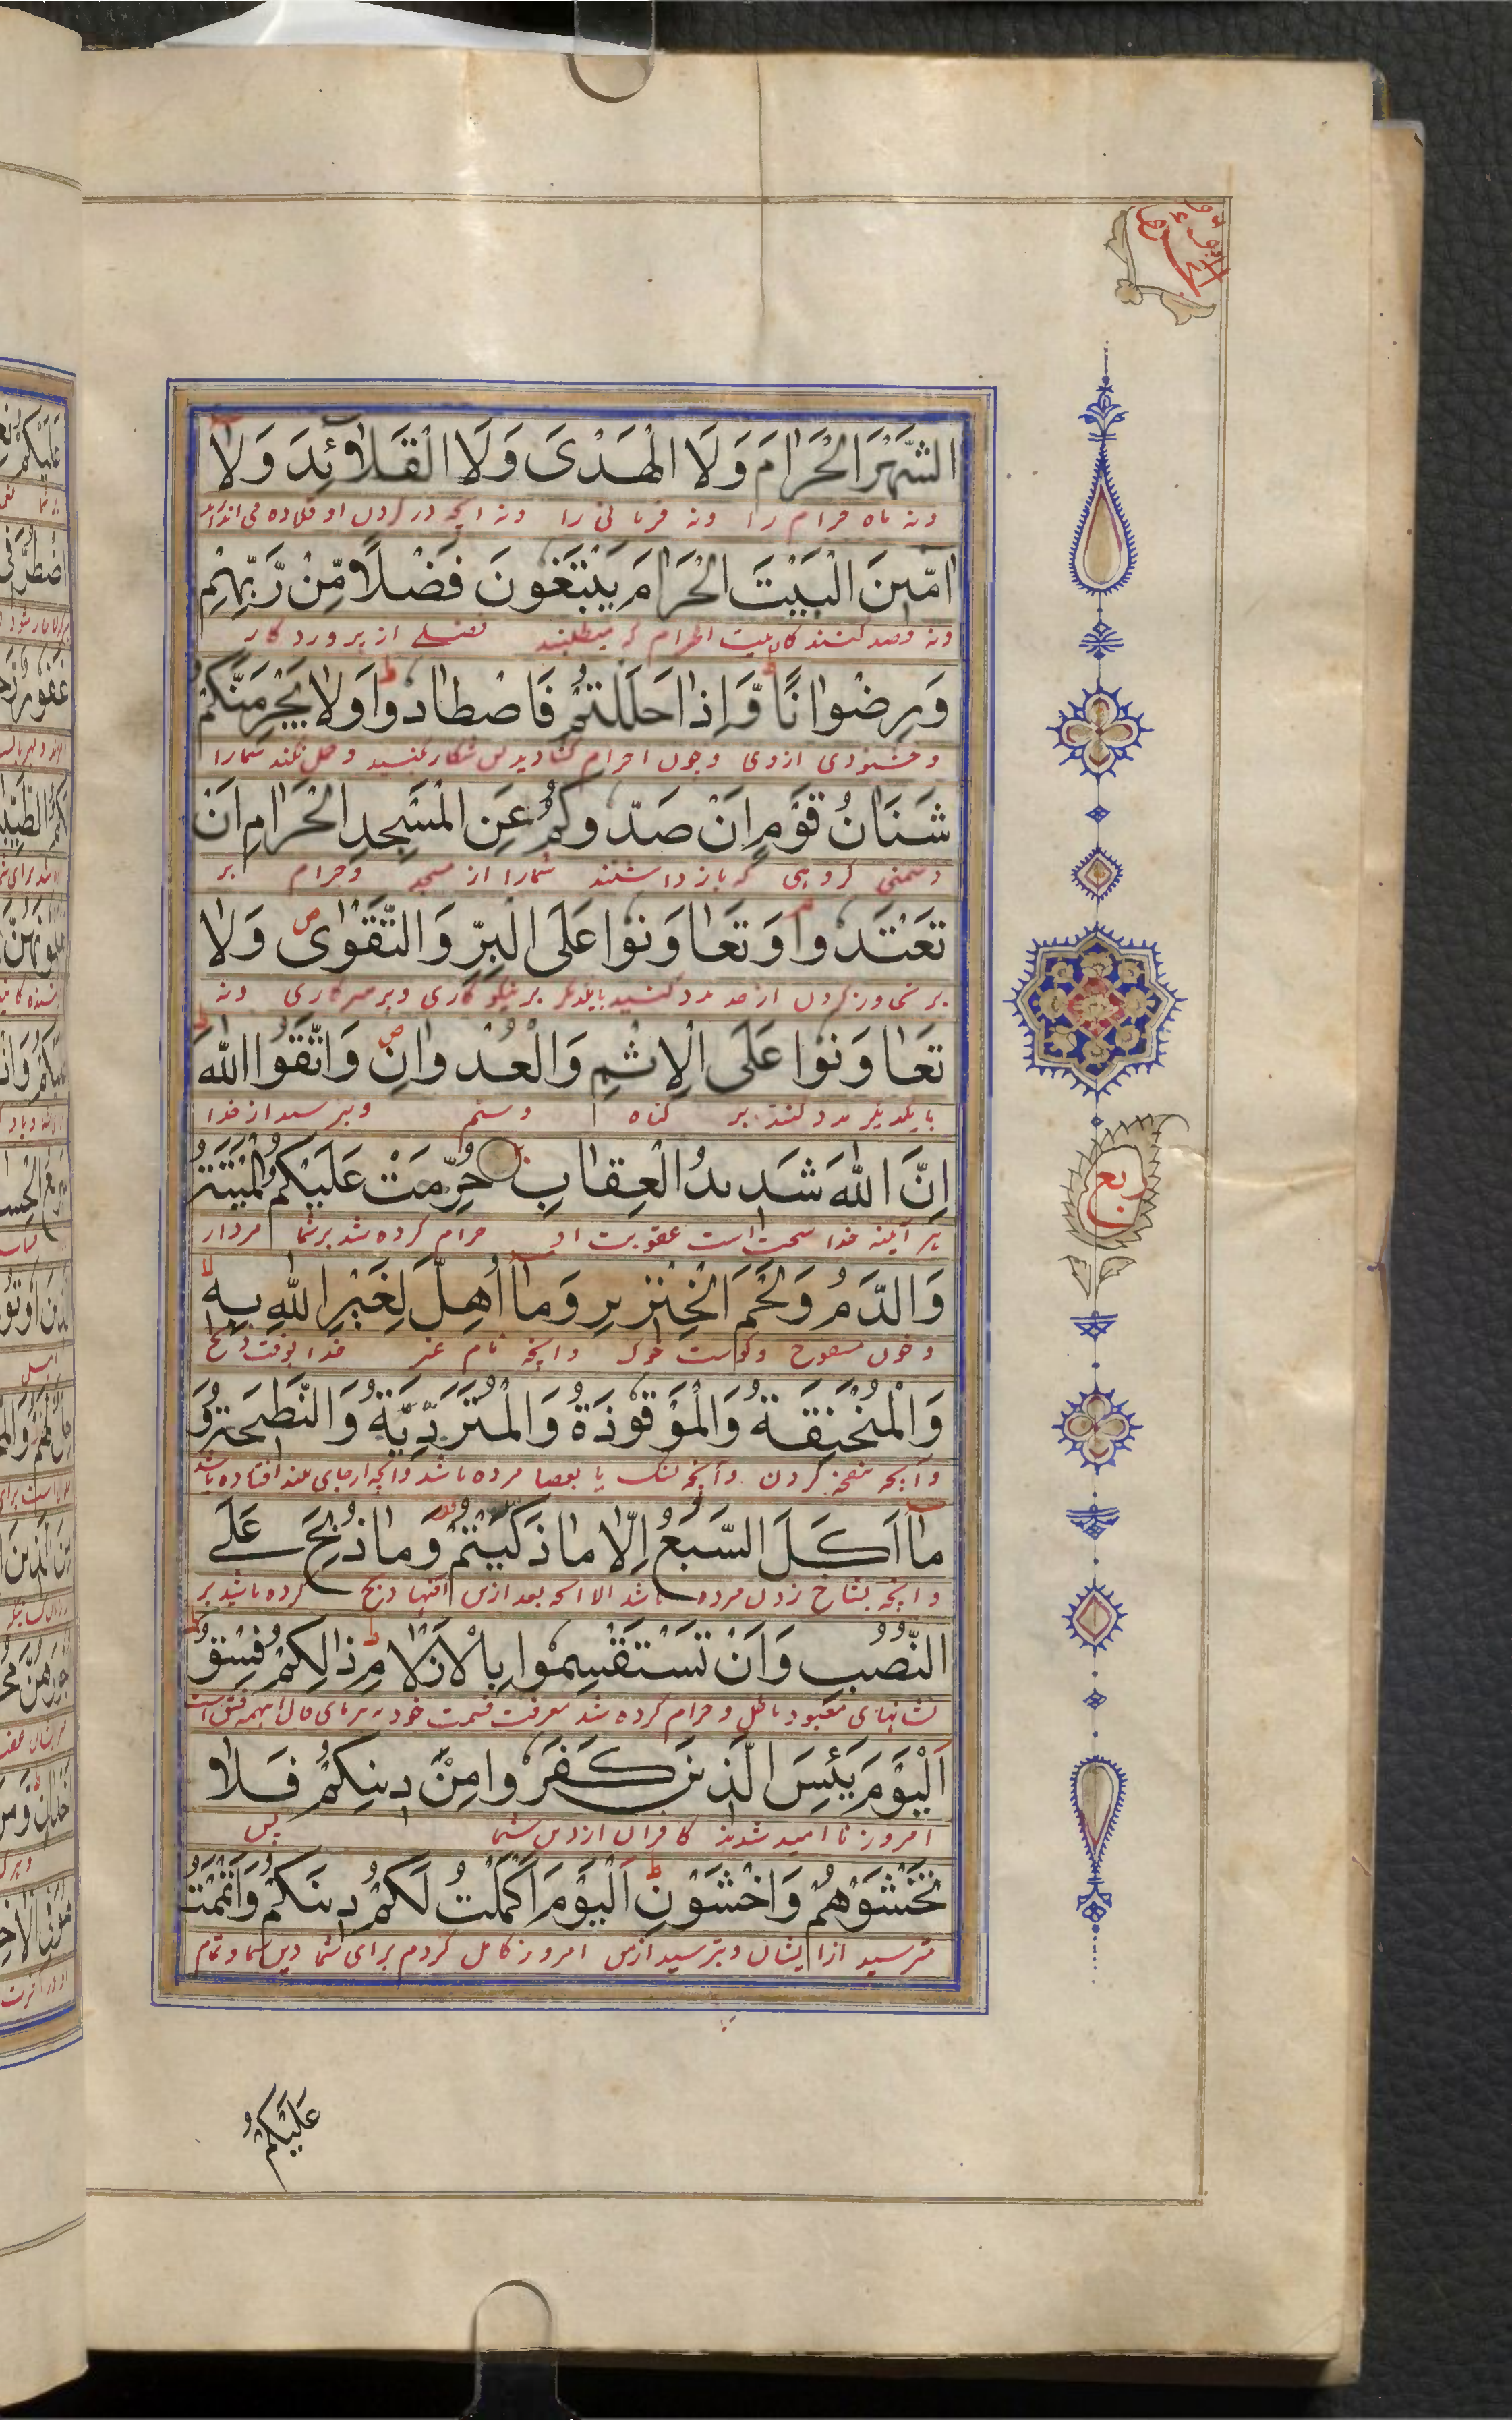 الشَّهْرَ الْحَرَامَ وَلَا الْهَدْىَ وَلَا الْقَلَآئِدَ وَلَا
ونه ماه حرام را ونه قربانی را ونه آنچه در گردن او قلاده می اندازند
آمِّينَ الْبَيْتَ الْحَرَامَ يَبْتَغُونَ فَضْلًا مِّنْ رَّبِّهِمْ
ونه قصد کنندگان بیت الحرام که میطلبند فضلے از پروردگار
وَرِضْوَانًا وَّاِذَا حَلَلْتُمْ فَاصْطَادُوا وَلَا يَجْرِمَنَّكُمْ
وخشنودی ازوی وچون احرام گشادید پس شکار کنید وحمل نکند شمارا
شَنَاٰنُ قَوْمٍ اَنْ صَدُّوكُمْ عَنِ الْمَسْجِدِ الْحَرَامِ اَنْ
دشمنی گروهی که باز داشتند شمارا از مسجد وحرام بر
تَعْتَدُوا وَتَعَاوَنُوا عَلَى الْبِرِّ وَالتَّقْوٰى وَلَا
ازحد مدد کنید بایکدیگر بر نیکو کاری وبر ونه
تَعَاوَنُوا عَلَى الْاِثْمِ وَالْعُدْوَانِ وَاتَّقُوا اللّٰهَ
بایکدیگر مدد کنند بر گناه وستم وبترسید از خدا
اِنَّ اللّٰهَ شَدِيدُ الْعِقَابِ حُرِّمَتْ عَلَيْكُمُ الْمَيْتَةُ
هر آیینه خدا سخت است عقوبت او حرام کرده شد برشما مردار
وَالدَّمُ وَلَحْمُ الْخِنْزِيرِ وَمَا اُهِلَّ لِغَيْرِ اللّٰهِ بِهٖ
وخون مسفوح وگوشت خوک وآنچه نام غیر خدا بوقت ذبح
وَالْمُنْخَنِقَةُ وَالْمَوْقُوذَةُ وَالْمُتَرَدِّيَةُ وَالنَّطِيحَةُ وَ
وآنچه کردن وآنچه بسنگ یا بعصا مرده باشد وآنچه ازجای بلند افتاده باشد
مَا اَكَلَ السَّبُعُ اِلَّا مَا ذَكَّيْتُمْ وَمَا ذُبِحَ عَلَى
وآنچه بشاخ زدن مرده باشد الا آنچه بعد ازین ذبح کرده باشید بر
النُّصُبِ وَاَنْ تَسْتَقْسِمُوا بِالْاَزْلَامِ ذٰلِكُمْ فِسْقٌ
نشانهای معبود باطل وحرام کرده شد معرفت قسمت خود به تیرهای فال اینهمه فسق است
اَلْيَوْمَ يَئِسَ الَّذِينَ كَفَرُوا مِنْ دِينِكُمْ فَلَا
امروز نا امید شدند کافران از دین شما پس
تَخْشَوْهُمْ وَاخْشَوْنِ اَلْيَوْمَ اَكْمَلْتُ لَكُمْ دِينَكُمْ وَاَتْمَمْتُ
مترسید از ایشان وبترسید ازمن امروز کامل کردم برای شما دین شما وتمام
ربع
عَلَيْكُمْ